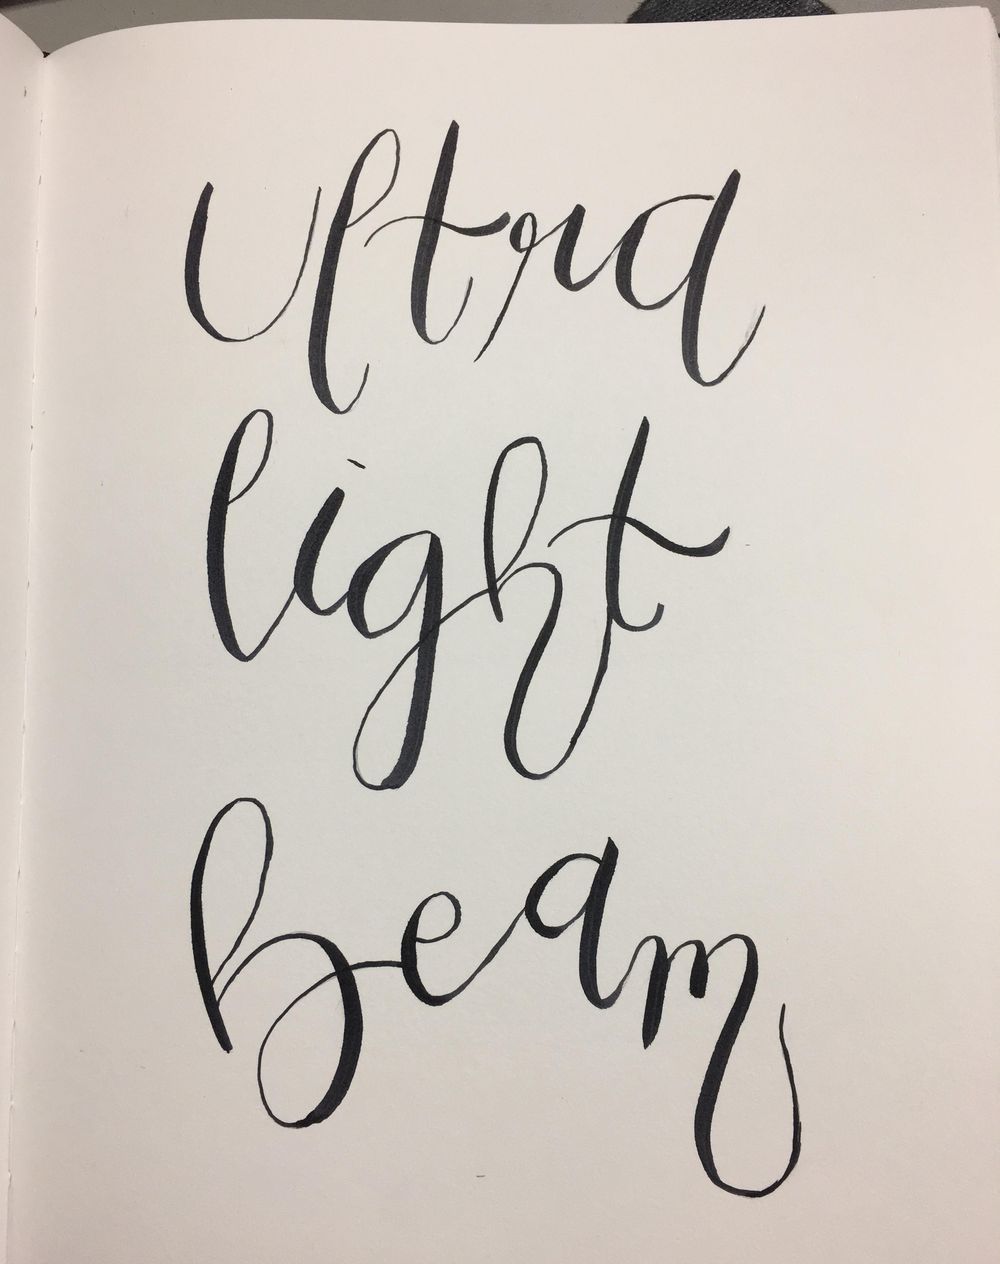 Ultra
light
Beam